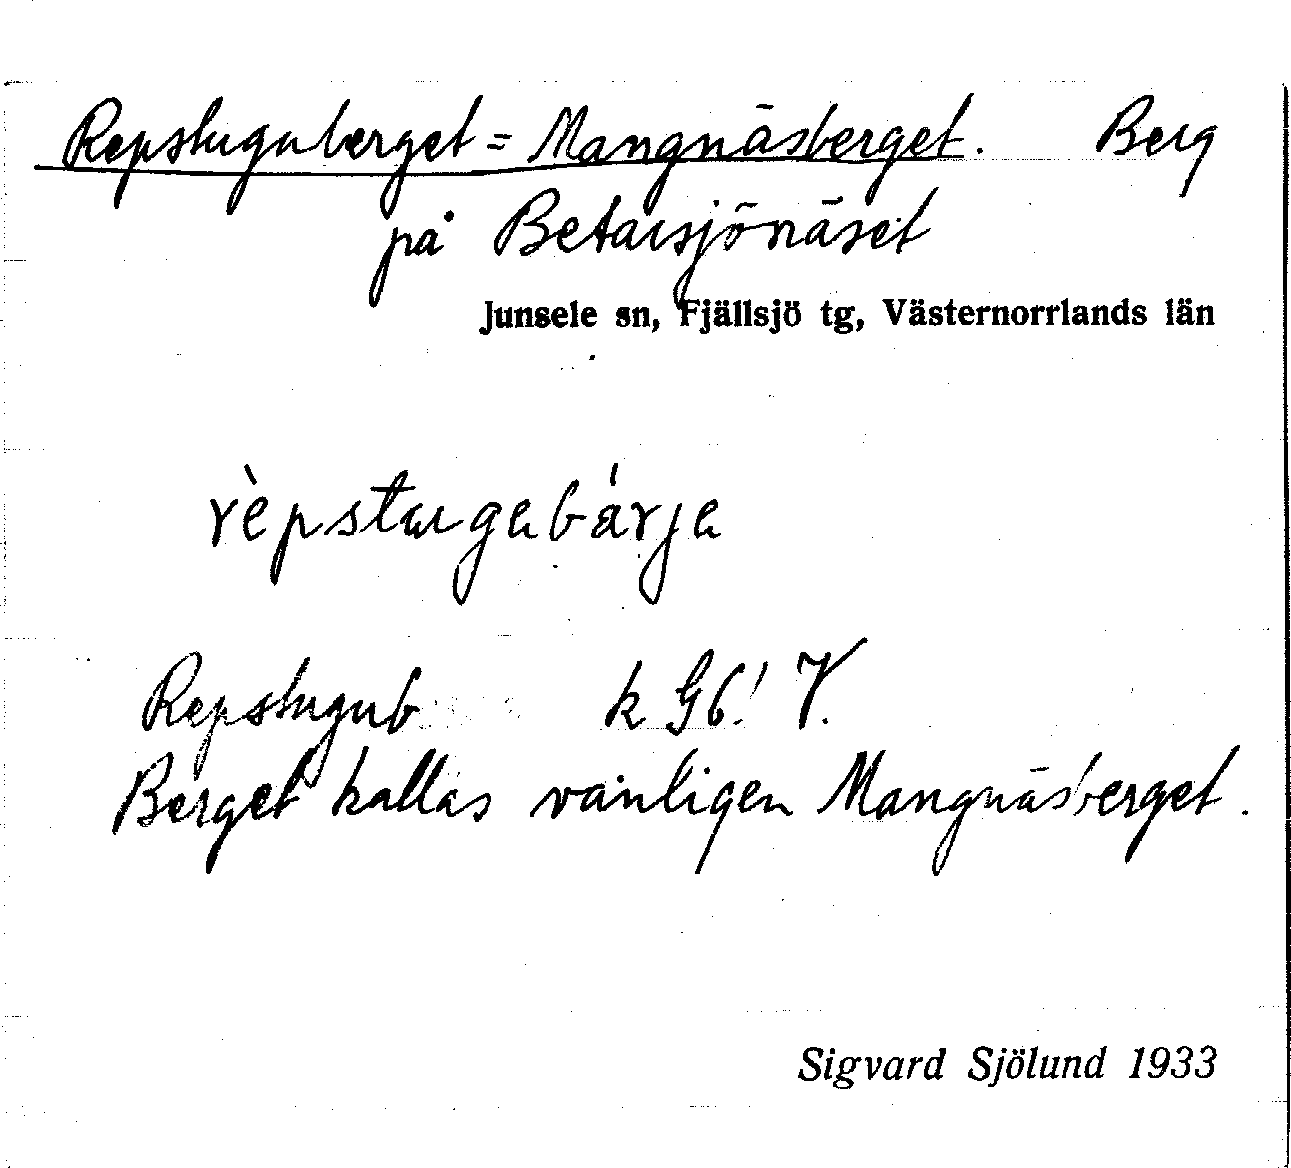 Repstuguberget = Mangnäsberget. Berg
på Betarsjönäset
Junsele sn, Fjällsjö tg, Västernorrlands län
rèpstugabárja
Repstugub k Gb! V.
Berget kallas vanligen Mangnäsberget.
Sigvard Sjölund 1933